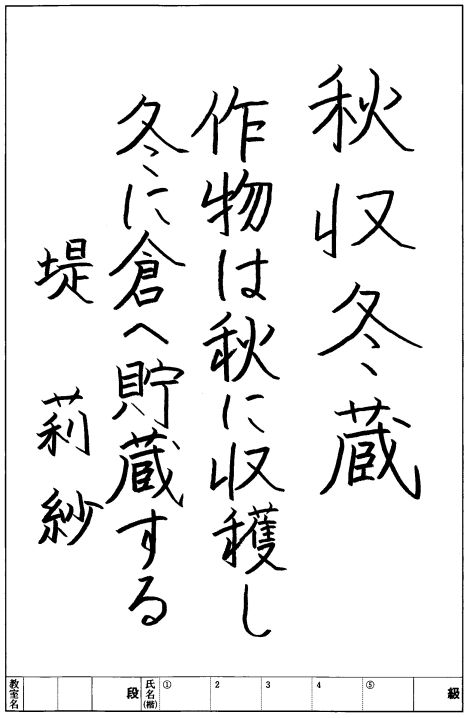 秋収冬蔵
作物は秋に収穫し
冬に倉へ貯蔵する
堤 莉紗
級 ⑤ 4 3 2 ① 氏名(楷) 段 教室名